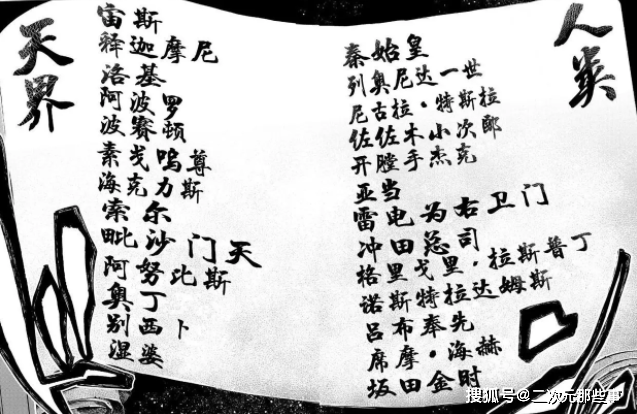 天界
宙斯
释迦摩尼
洛基
阿波罗
波赛顿
素戈呜尊
海克力斯
索尔
毗沙门天
阿努比斯
奥丁
别西卜
湿婆
人类
秦始皇
列奥尼达一世
尼古拉·特斯拉
佐佐木小次郎
开膛手杰克
亚当
雷电为右卫门
冲田总司
格里戈里·拉斯普丁
诺斯特拉达姆斯
吕布奉先
席摩·海赫
坂田金时
搜狐号@二次元那些事